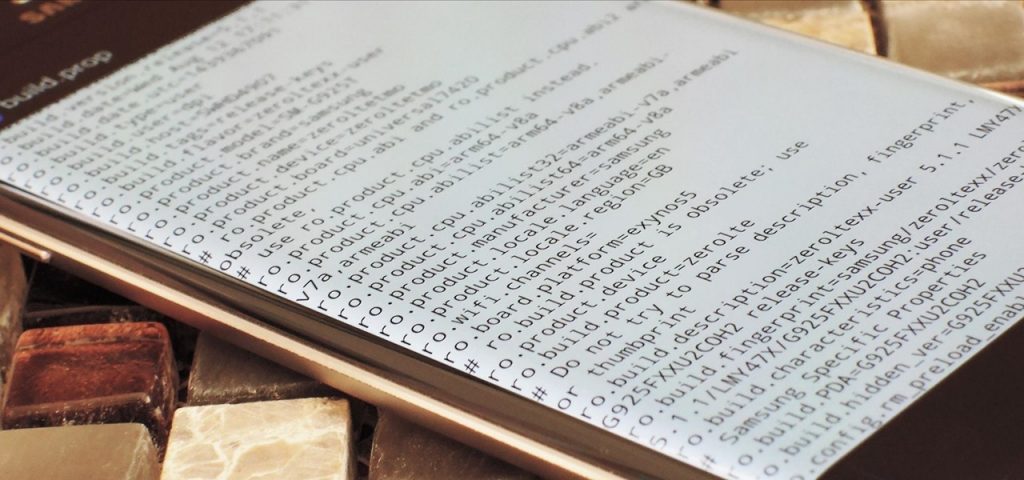 SAM
build.prop
ro.build.type=user
ro.build.tags=release-keys
ro.build.flavor=zeroltexx-user
ro.product.model=SM-G925T
ro.product.brand=samsung
ro.product.name=zeroltetmo
ro.product.device=zeroltetmo
ro.product.board=universal7420
# ro.product.cpu.abi and ro.product.cpu.abi2 are
obsolete,
# use ro.product.cpu.abilist instead.
ro.product.cpu.abi=arm64-v8a
ro.product.cpu.abilist=arm64-v8a,armeabi-
v7a,armeabi
ro.product.cpu.abilist32=armeabi-v7a,armeabi
ro.product.cpu.abilist64=arm64-v8a
ro.product.manufacturer=samsung
ro.product.locale.language=en
ro.product.locale.region=GB
ro.wifi.channels=
ro.board.platform=exynos5
# ro.build.product is obsolete; use
ro.product.device
ro.build.product=zerolte
# Do not try to parse description, fingerprint,
or thumbprint
ro.build.description=zeroltexx-user 5.1.1 LMY47X
G925FXXU2COH2 release-keys
ro.build.fingerprint=samsung/zeroltexx/zero
5.1.1/LMY47X/G925FXXU2COH2:user/release
ro.build.characteristics=phone
# Samsung Specific Properties
ro.build.PDA=G925FXXU2COH2
ro.build.hidden_ver=G925FXXU
ro.config.rm_preload_enabl